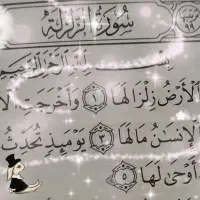 سُورَةُ الزَّلْزَلَةِ
بِسْمِ اللَّهِ الرَّحْمَٰنِ الرَّحِيمِ
الْأَرْضُ زِلْزَالَهَا ١ وَأَخْرَجَتِ
الْإِنسَانُ مَا لَهَا ٣ يَوْمَئِذٍ تُحَدِّثُ
أَوْحَىٰ لَهَا ٥